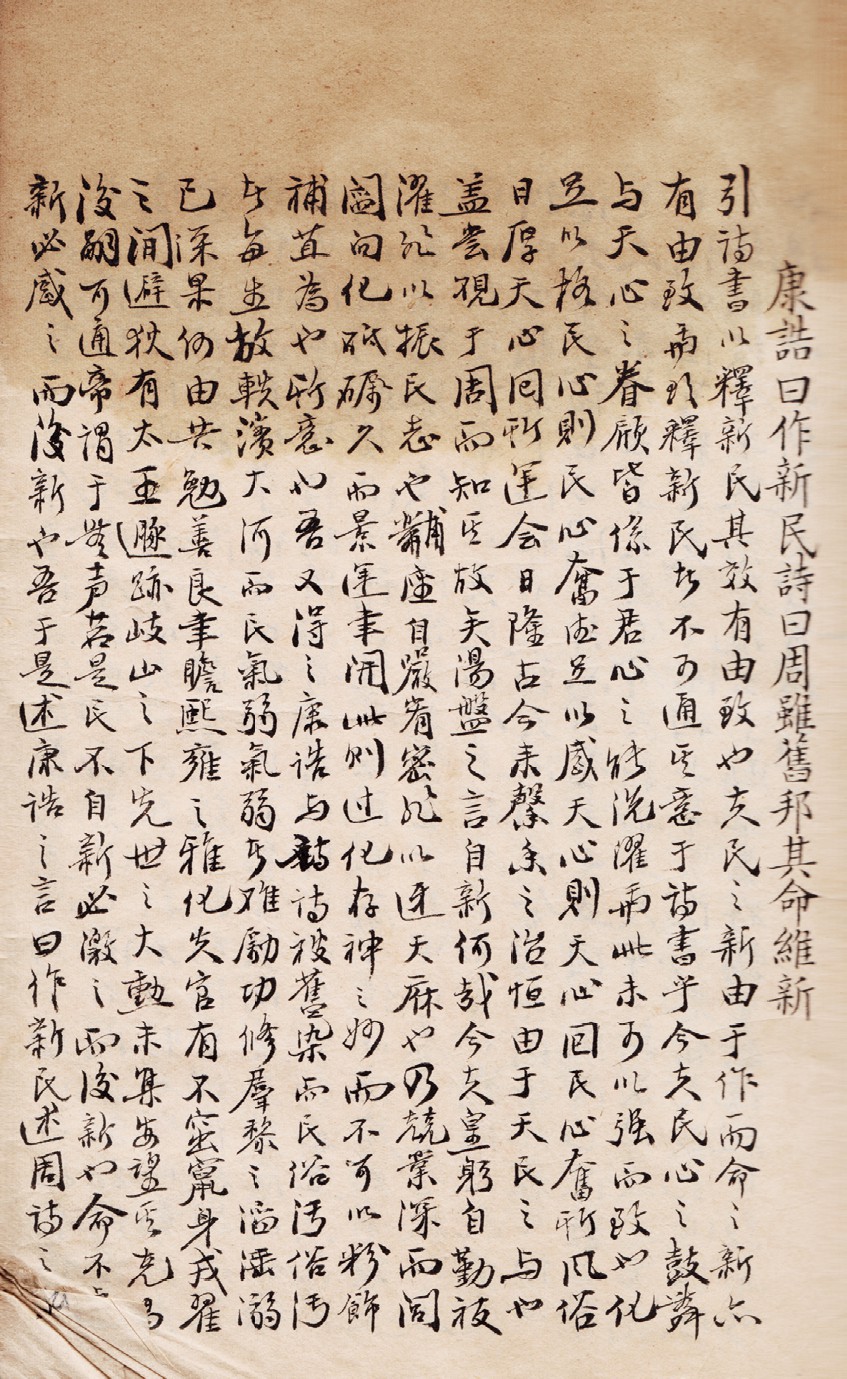 康誥曰作新民詩曰周雖舊邦其命維新
引詩書以釋新民其效有由致也夫民之新由于作而命之新亦
有由致焉欲釋新民者不可通其意于詩書乎今夫民心之鼓舞
与天心之眷顧皆係于君心之能洗濯焉此未可以强而致也化
足以格民心則民心奮德足以感天心則天心回民心奮斯风俗
日厚天心回斯運会日隆古今来馨香之治恒由于天民之与也
盖尝視于周而知其故矣湯盤之言自新何哉今夫皇躬自勤祓
濯非以振民志也黼座自嚴宥密非以迓天庥也乃兢業深而闾
阎向化砥礪久而景運聿開此则过化存神之妙而不可以粉飾
補苴為也斯意也吾又得之康誥与詩詩被舊染而民俗污俗污
者每生放軼濱大河而民氣弱氣弱者难勵功修羣黎之滔湎溺
已深果何由共勉善良聿瞻熙雍之雅化失官有不窋竄身戎翟
之间避狄有太王遯跡岐山之下先世之大勳未集安望其克
後嗣可通帝謂于無声若是民不自新必激之而後新也命不
新必感之而後新也吾于是述康誥之言曰作新民述周詩之